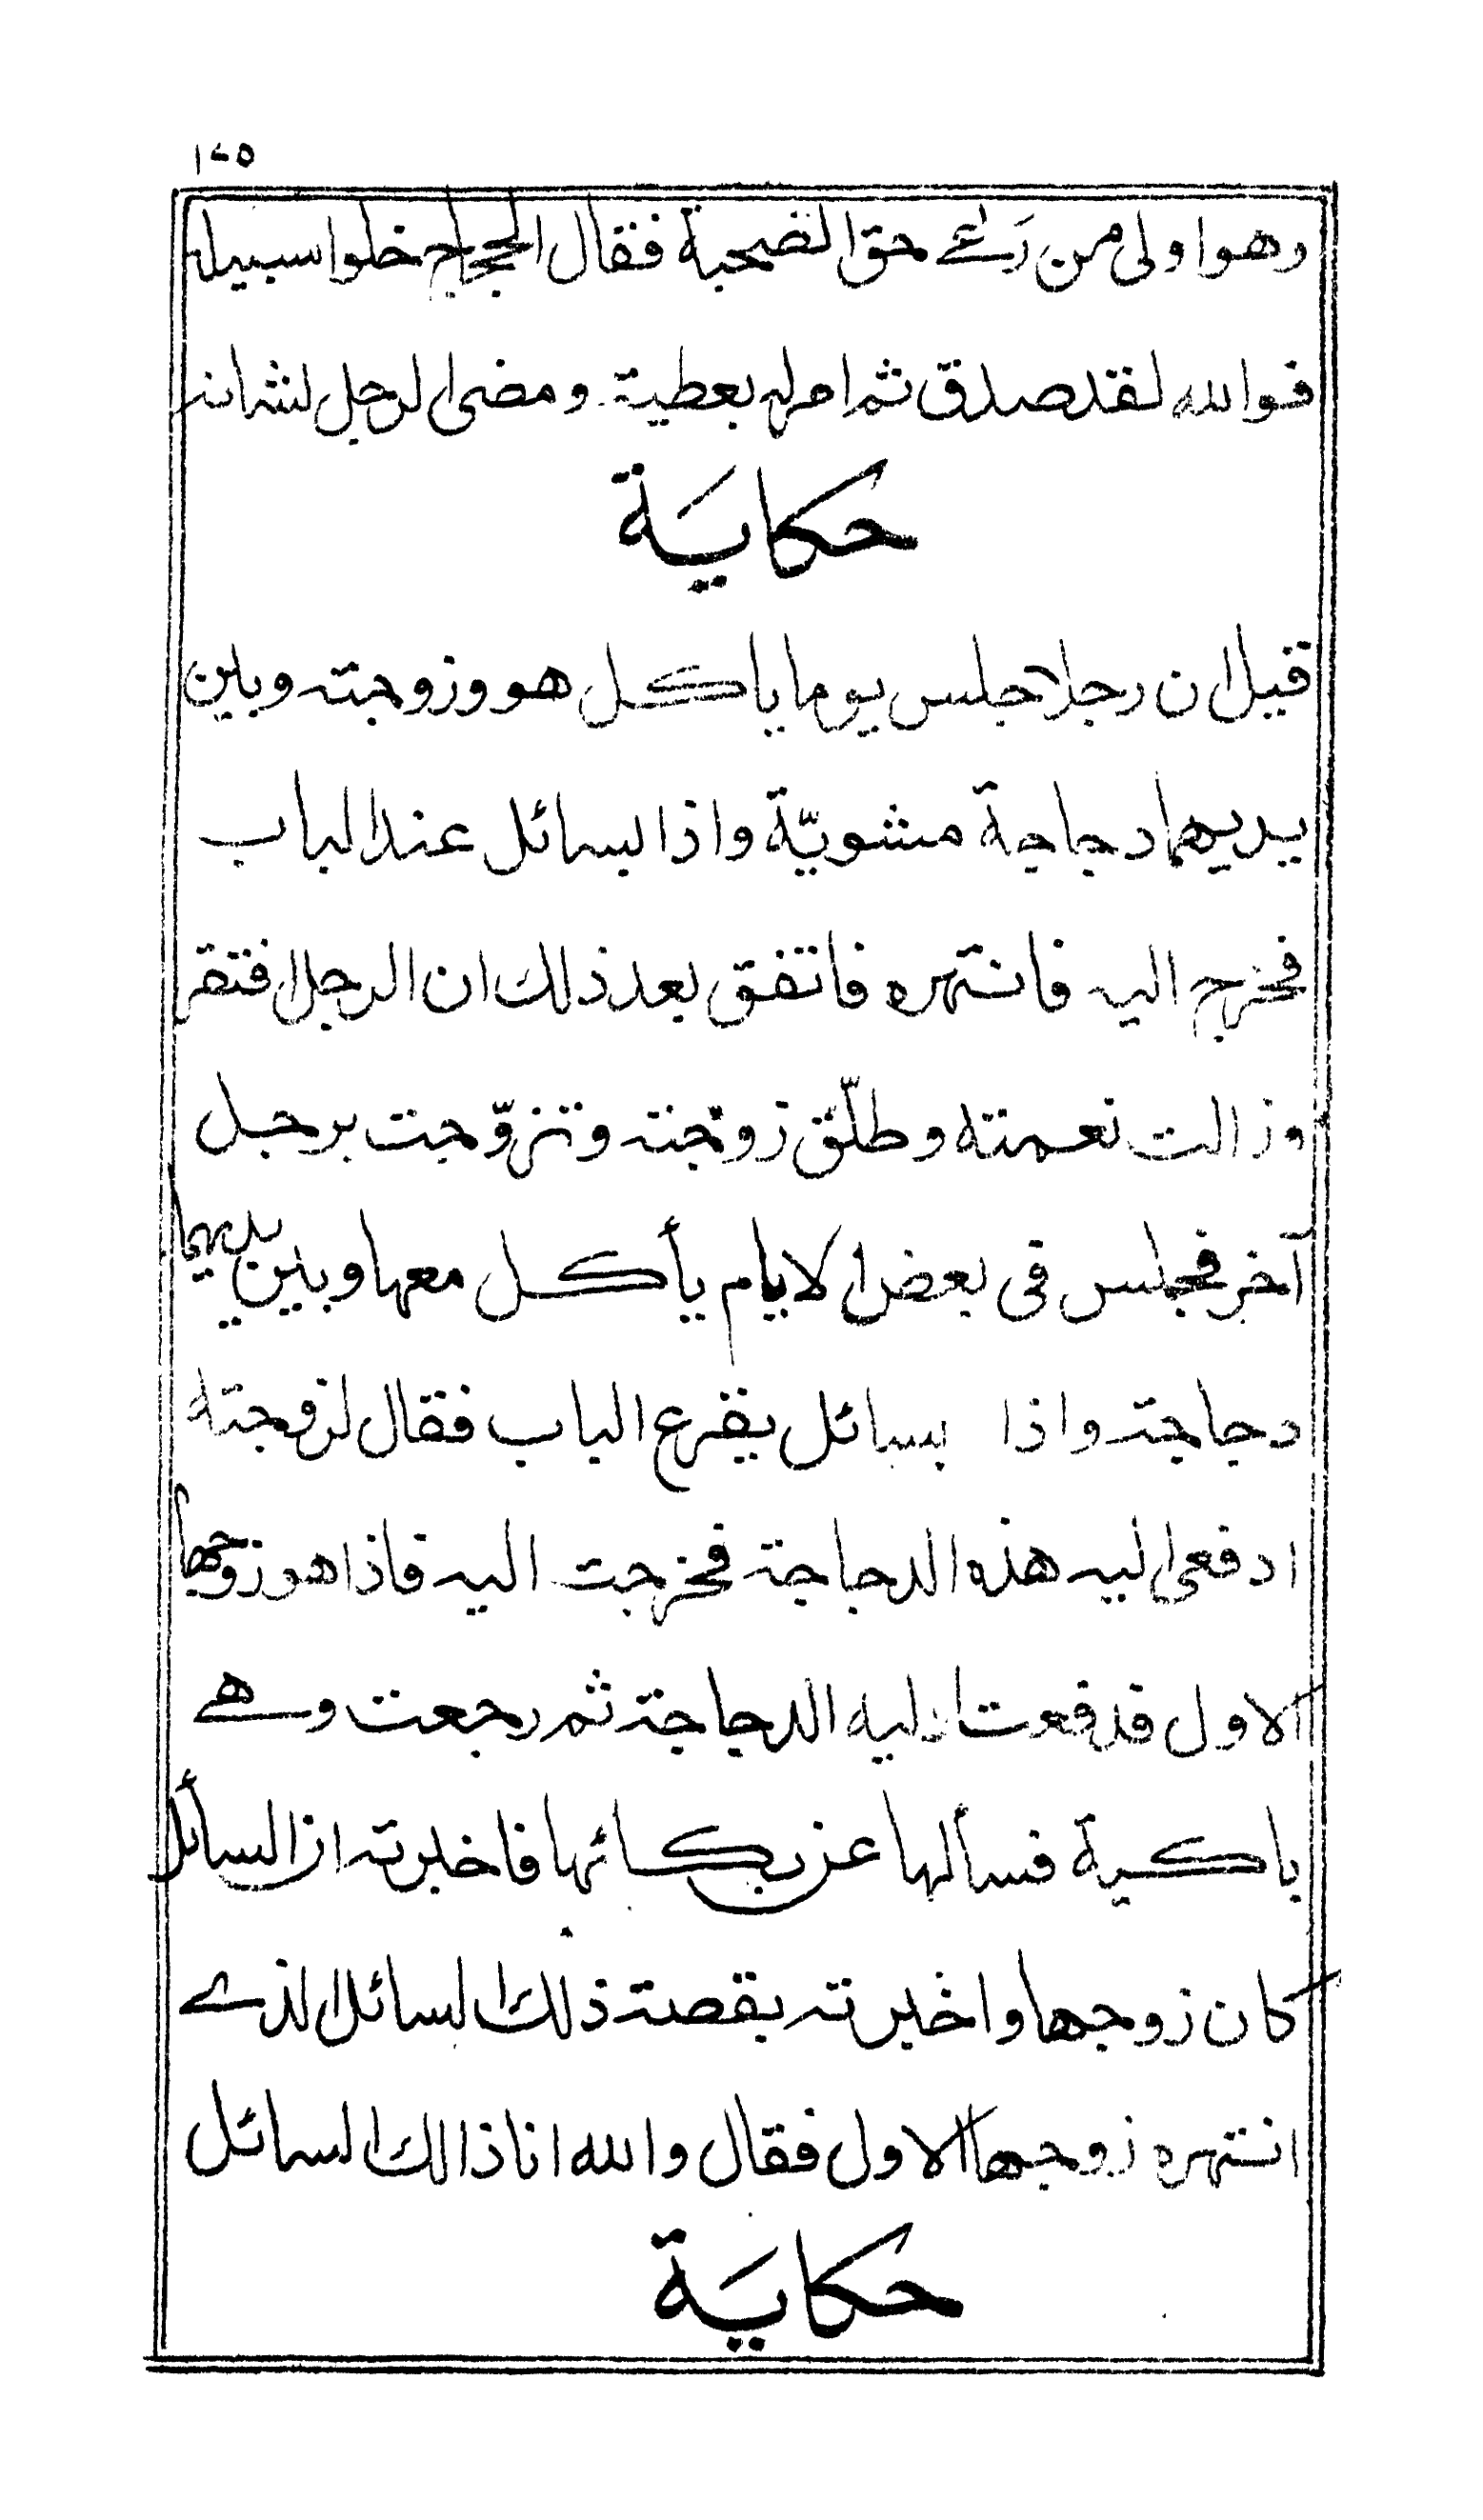 ١٢٥
وهو اولى من رعى حق الصحبة فقال الحجاج خلوا سبيله
فوالله لقد صدق ثم امر له بعطية ومضى الرجل لشانه
حكايَة
قيل ان رجلا جلس يوما ياكل هو وزوجته وبين
يديهما دجاجة مشويّة واذا بسائل عند الباب
فخرج اليه فانتهره فاتفق بعد ذلك ان الرجل افتقر
وزالت نعمته وطلّق زوجته وتزوّجت برجل
آخر فجلس في بعض الايام يأكل معها وبين يديهما
دجاجة واذا بسائل يقرع الباب فقال لزوجته
ادفعى اليه هذه الدجاجة فخرجت اليه فاذا هو زوجها
الاول فدفعت اليه الدجاجة ثم رجعت وهى
باكية فسألها عن بكائها فاخبرته ان السائل
كان زوجها واخبرته بقصة ذلك السائل الذى
انتهره زوجها الاول فقال والله انا ذالك السائل
حكايَة